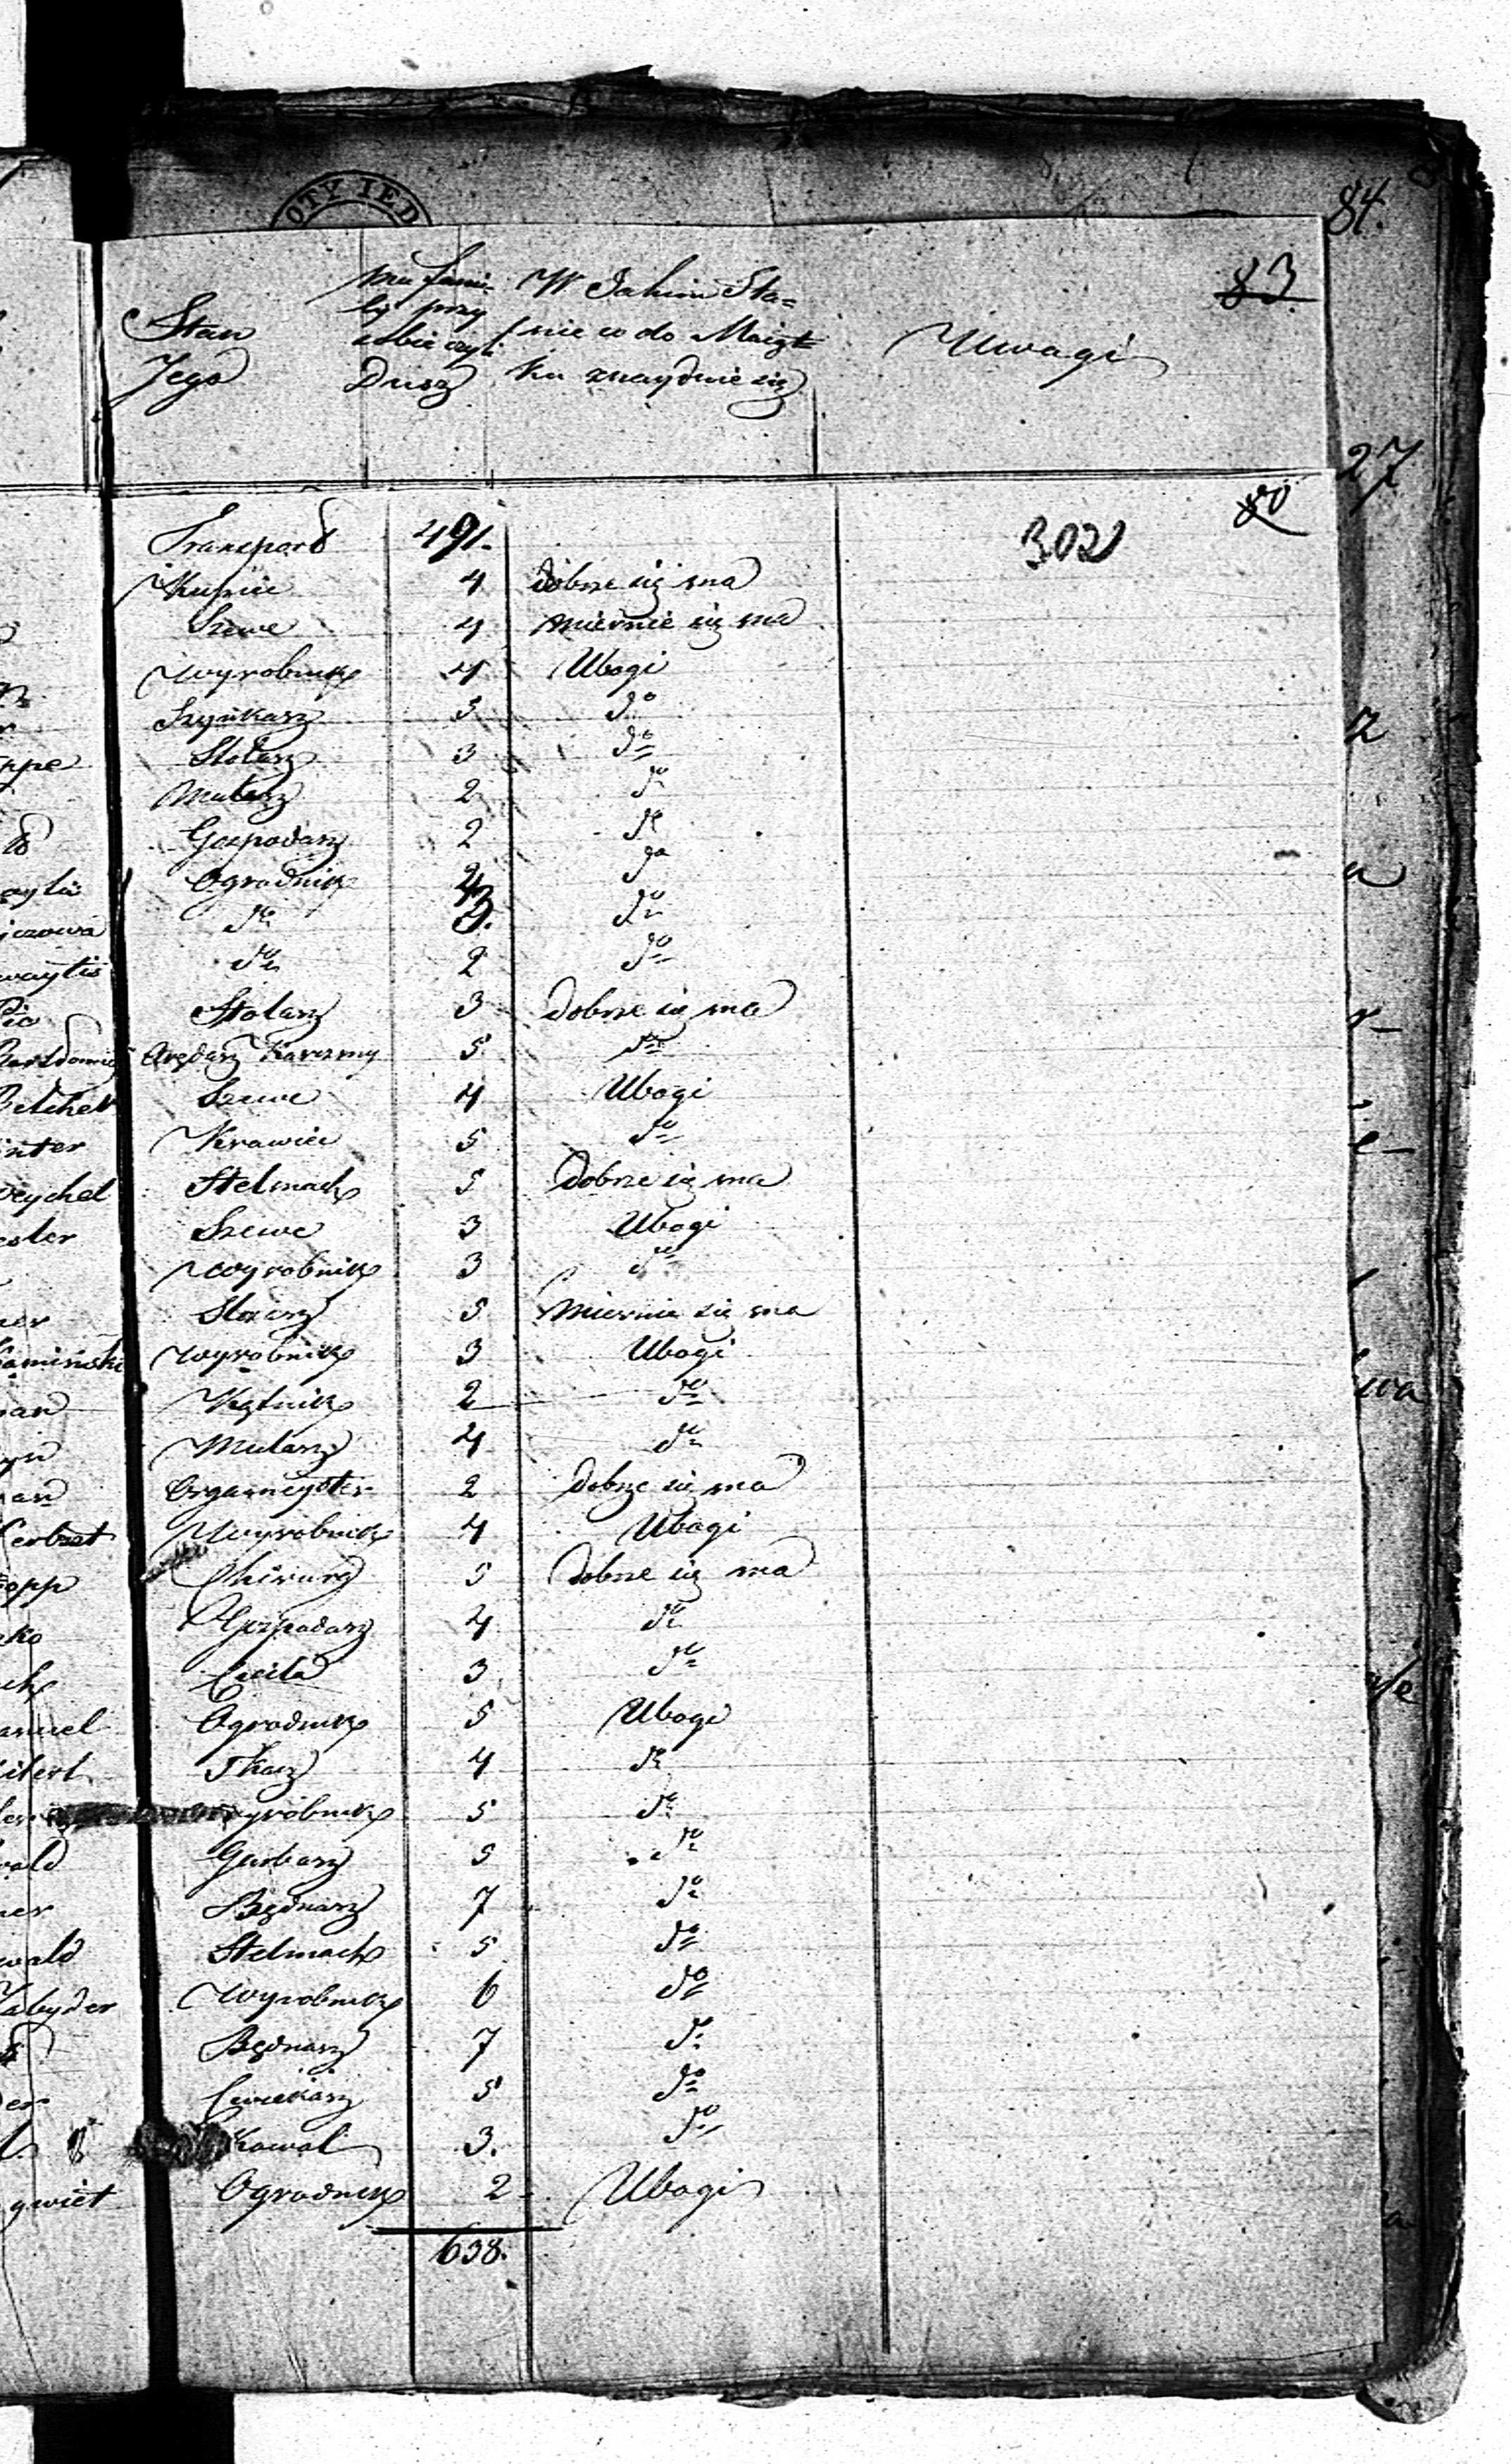 OTY IED
84.
83
Stan Jego
ma fami-
lij przy
sobie czyli
Dusz
W Jakim Sta-
nie co do Maiąt-
ku znayduie się
Uwagi
27
80
302
Transport 491.
Kupiec 4 dobrze się ma
Szewc 4 miernie się ma
Wyrobnik 4 Ubogi
Szynkarz 5 do
ppe Stolarz 3 do
Mularz 2 do
Gospodarz 2 do
Ogrodnik 2 do
do 3. do
waytis do 2 do
Stolarz 3 Dobrze się ma
Arędarz Karczmy 5 do
Szewc 4 Ubogi
inter Krawiec 5 do
weychel Stelmach 5 Dobrze się ma
ester Szewc 3 Ubogi
Wyrobnik 3 do
ner 5 Miernie się ma
Kaminski Wyrobnik 3 Ubogi
Kątnik 2 do
Mularz 4 do
Organmeyster 2 dobrze się ma
Wyrobnik 4 Ubogi
opp Chirurg 5 Dobrze się ma
ko Gospodarz 4 do
Cieśla 3 do
anuel Ogrodnik 5 Ubogi
Tkacz 4 do
yrobnik 5 do
wald Garbarz 5 do
ner Będnarz 7 do
wald Stelmach 5 do
Wyrobnik 6 do
Będnarz 7 do
der Cwiekarz 5 do
Kowal 3. do
gwiet Ogrodnik 2 Ubogi
638.